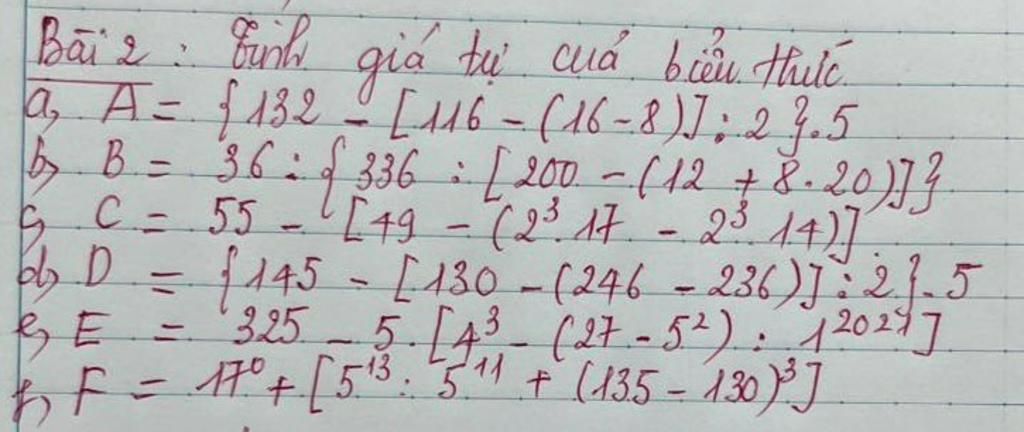 Bài 2 : Tính giá trị của biểu thức
a, A = {132 - [116 - (16-8)] : 2}.5
b, B = 36 : {336 : [200 - (12 + 8.20)]}
c, C = 55 - [49 - (2³.17 - 2³.14)]
d, D = {145 - [130 - (246 - 236)] : 2}.5
e, E = 325 - 5.[4³ - (27 - 5²) : 1²⁰²¹]
f, F = 17⁰ + [5¹³ : 5¹¹ + (135 - 130)³]